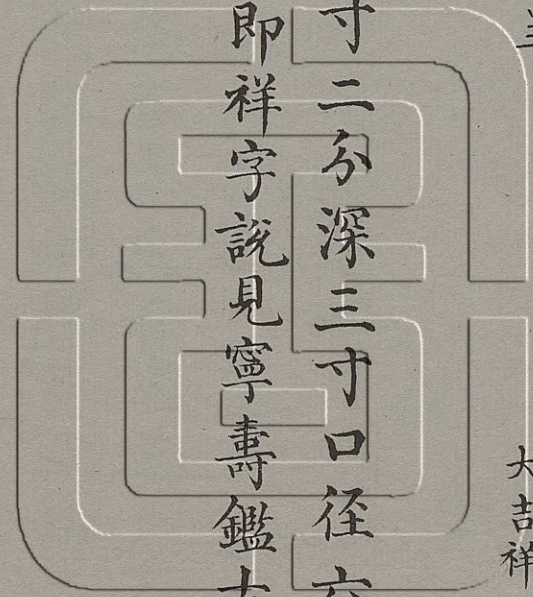 大吉祥
寸二分深三寸口径六
即祥字説見寧壽鑑古